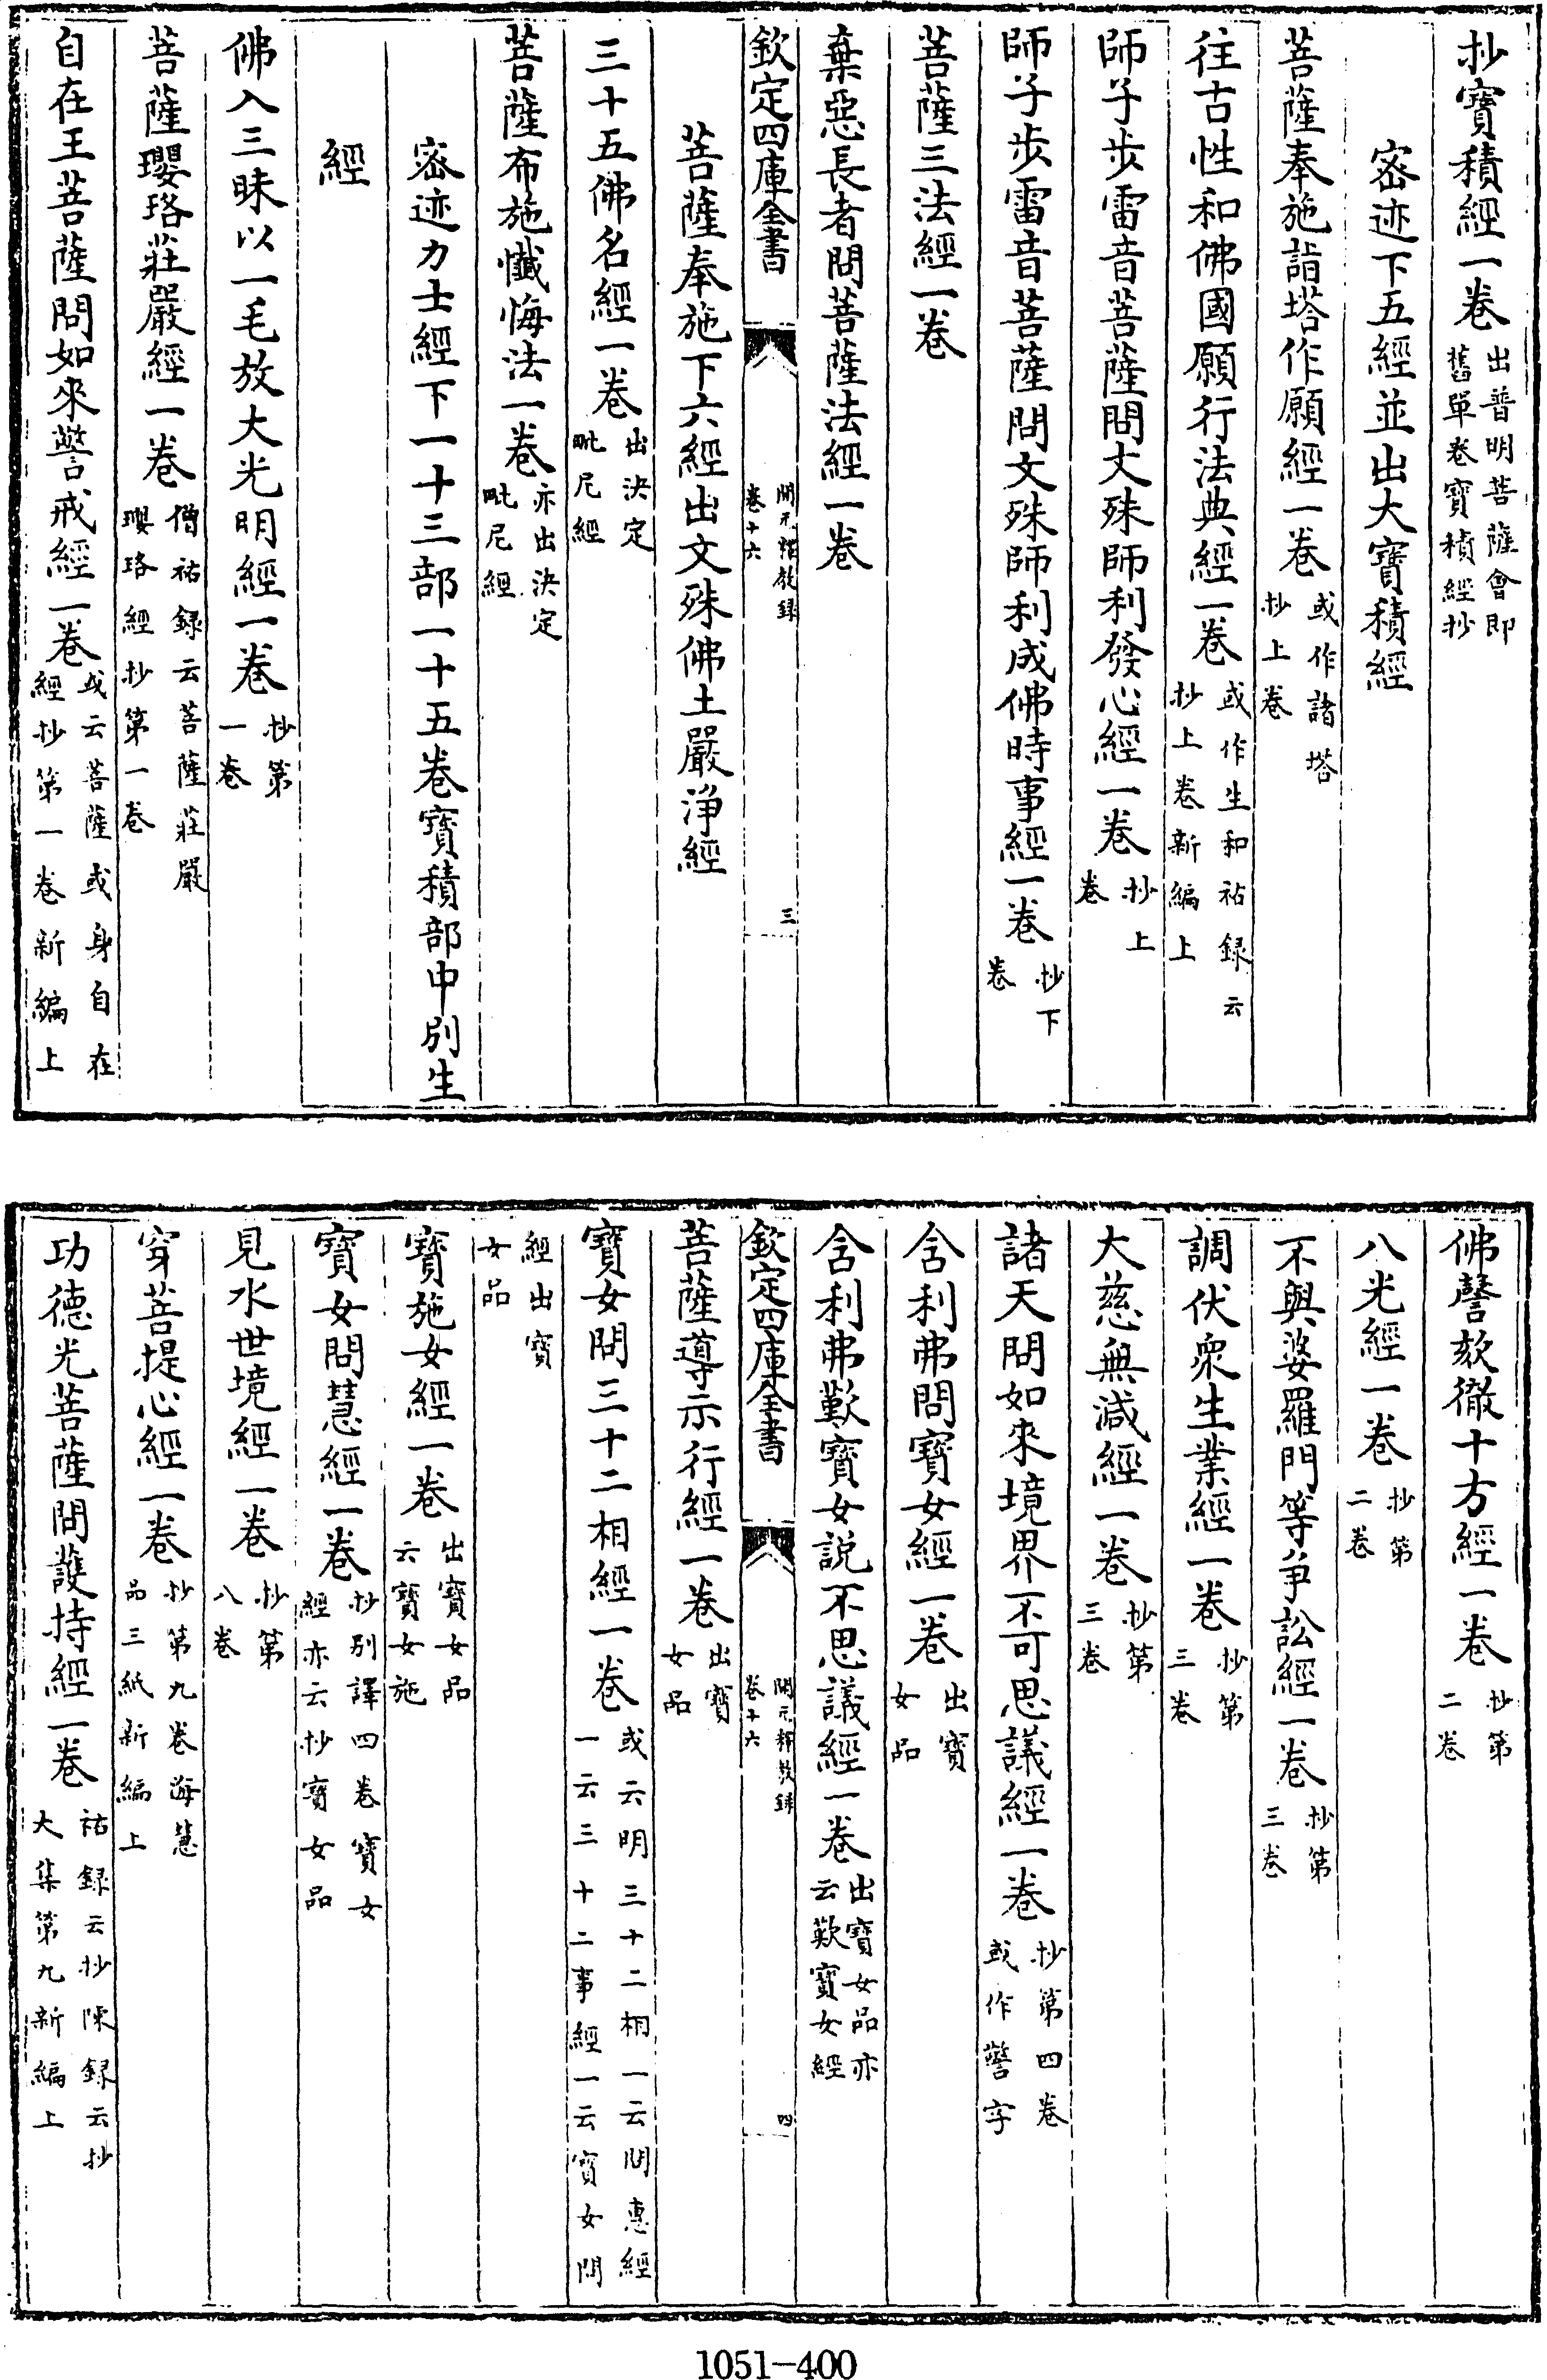 抄寶積經一卷出普明菩薩會即舊單卷寶積經抄
密迹下五經並出大寶積經
菩薩奉施詣塔作願經一卷或作諸塔抄上卷
往古性和佛國願行法典經一卷或作生和祐録云抄上卷新編上
師子步雷音菩薩問文殊師利發心經一卷抄上卷
師子步雷音菩薩問文殊師利成佛時事經一卷抄下卷
菩薩三法經一卷
棄惡長者問菩薩法經一卷
欽定四庫全書 開元釋教録卷十六 三
菩薩奉施下六經出文殊佛土嚴浄經
三十五佛名經一卷出決定毗尼經
菩薩布施懺悔法一卷亦出決定毗尼經
密迹力士經下一十三部一十五卷寶積部中別生
經
佛入三昧以一毛放大光明經一卷抄第一卷
菩薩瓔珞莊嚴經一卷僧祐録云菩薩莊嚴瓔珞經抄第一卷
自在王菩薩問如來警戒經一卷或云菩薩或身自在經抄第一卷新編上
佛謦欬徹十方經一卷抄第二卷
八光經一卷抄第二卷
不與婆羅門等爭訟經一卷抄第三卷
調伏衆生業經一卷抄第三卷
大慈無減經一卷抄第三卷
諸天問如來境界不可思議經一卷抄第四卷或作警字
舍利弗問寶女經一卷出寶女品
舍利弗歎寶女說不思議經一卷出寶女品亦云歎寶女經
欽定四庫全書 開元釋教録卷十六 四
菩薩導示行經一卷出寶女品
寶女問三十二相經一卷或云明三十二相一云問惠經一云三十二事經一云寶女問
經出寶女品
寶施女經一卷出寶女品云寶女施
寶女問慧經一卷抄別譯四卷寶女經亦云抄寶女品
見水世境經一卷抄第八卷
穿菩提心經一卷抄第九卷海慧品三紙新編上
功德光菩薩問護持經一卷祐録云抄陳録云抄大集第九新編上
1051-400